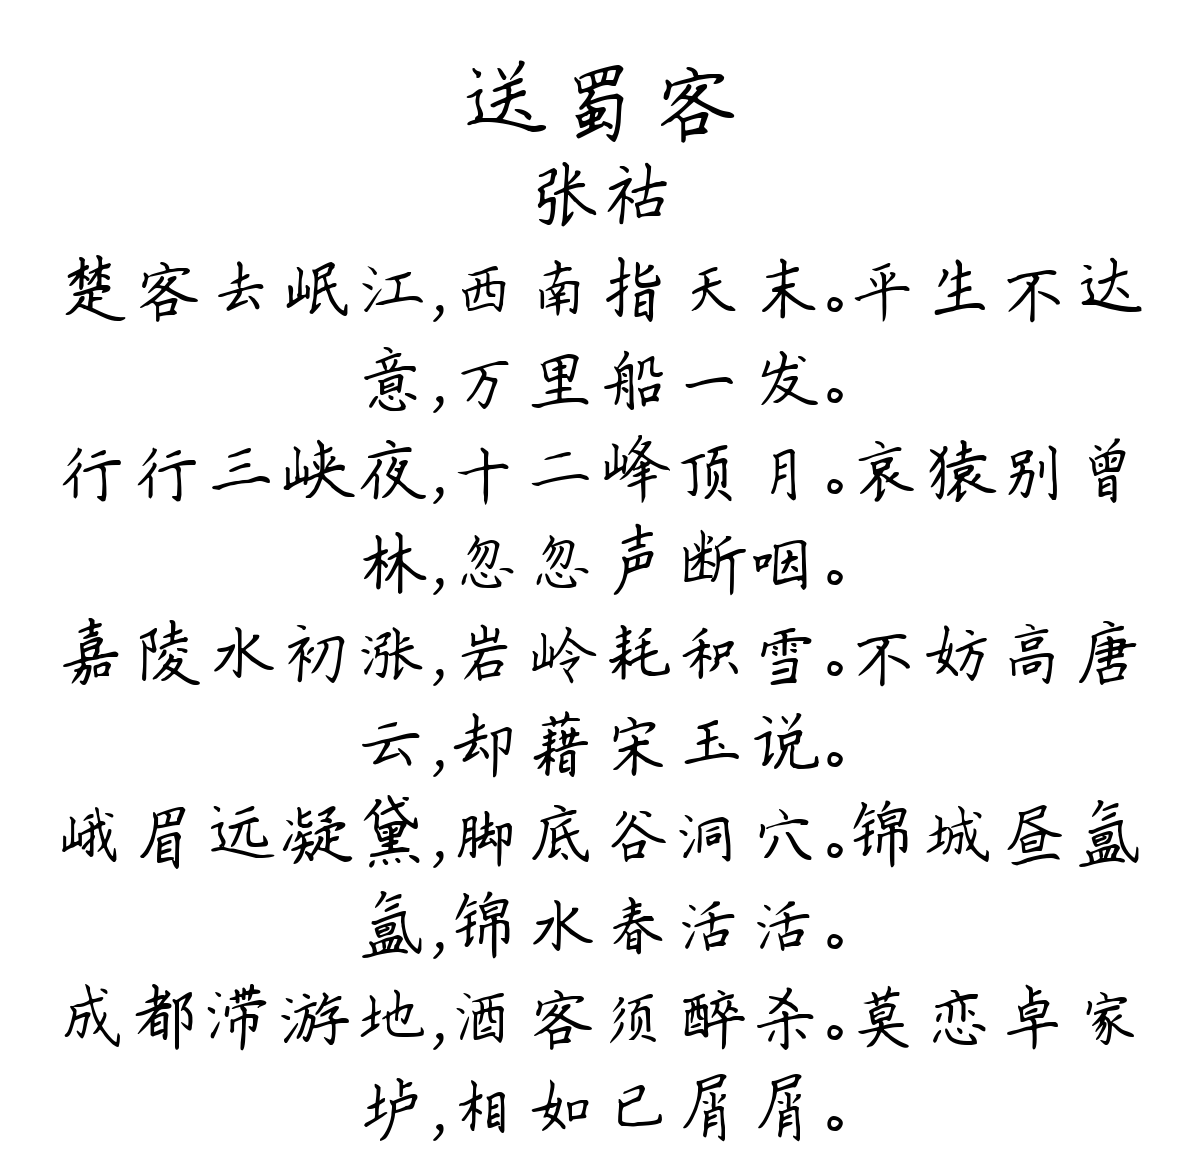 送蜀客
张祜
楚客去岷江,西南指天末。平生不达
意,万里船一发。
行行三峡夜,十二峰顶月。哀猿别曾
林,忽忽声断咽。
嘉陵水初涨,岩岭耗积雪。不妨高唐
云,却藉宋玉说。
峨眉远凝黛,脚底谷洞穴。锦城昼氲
氲,锦水春活活。
成都滞游地,酒客须醉杀。莫恋卓家
垆,相如已屑屑。